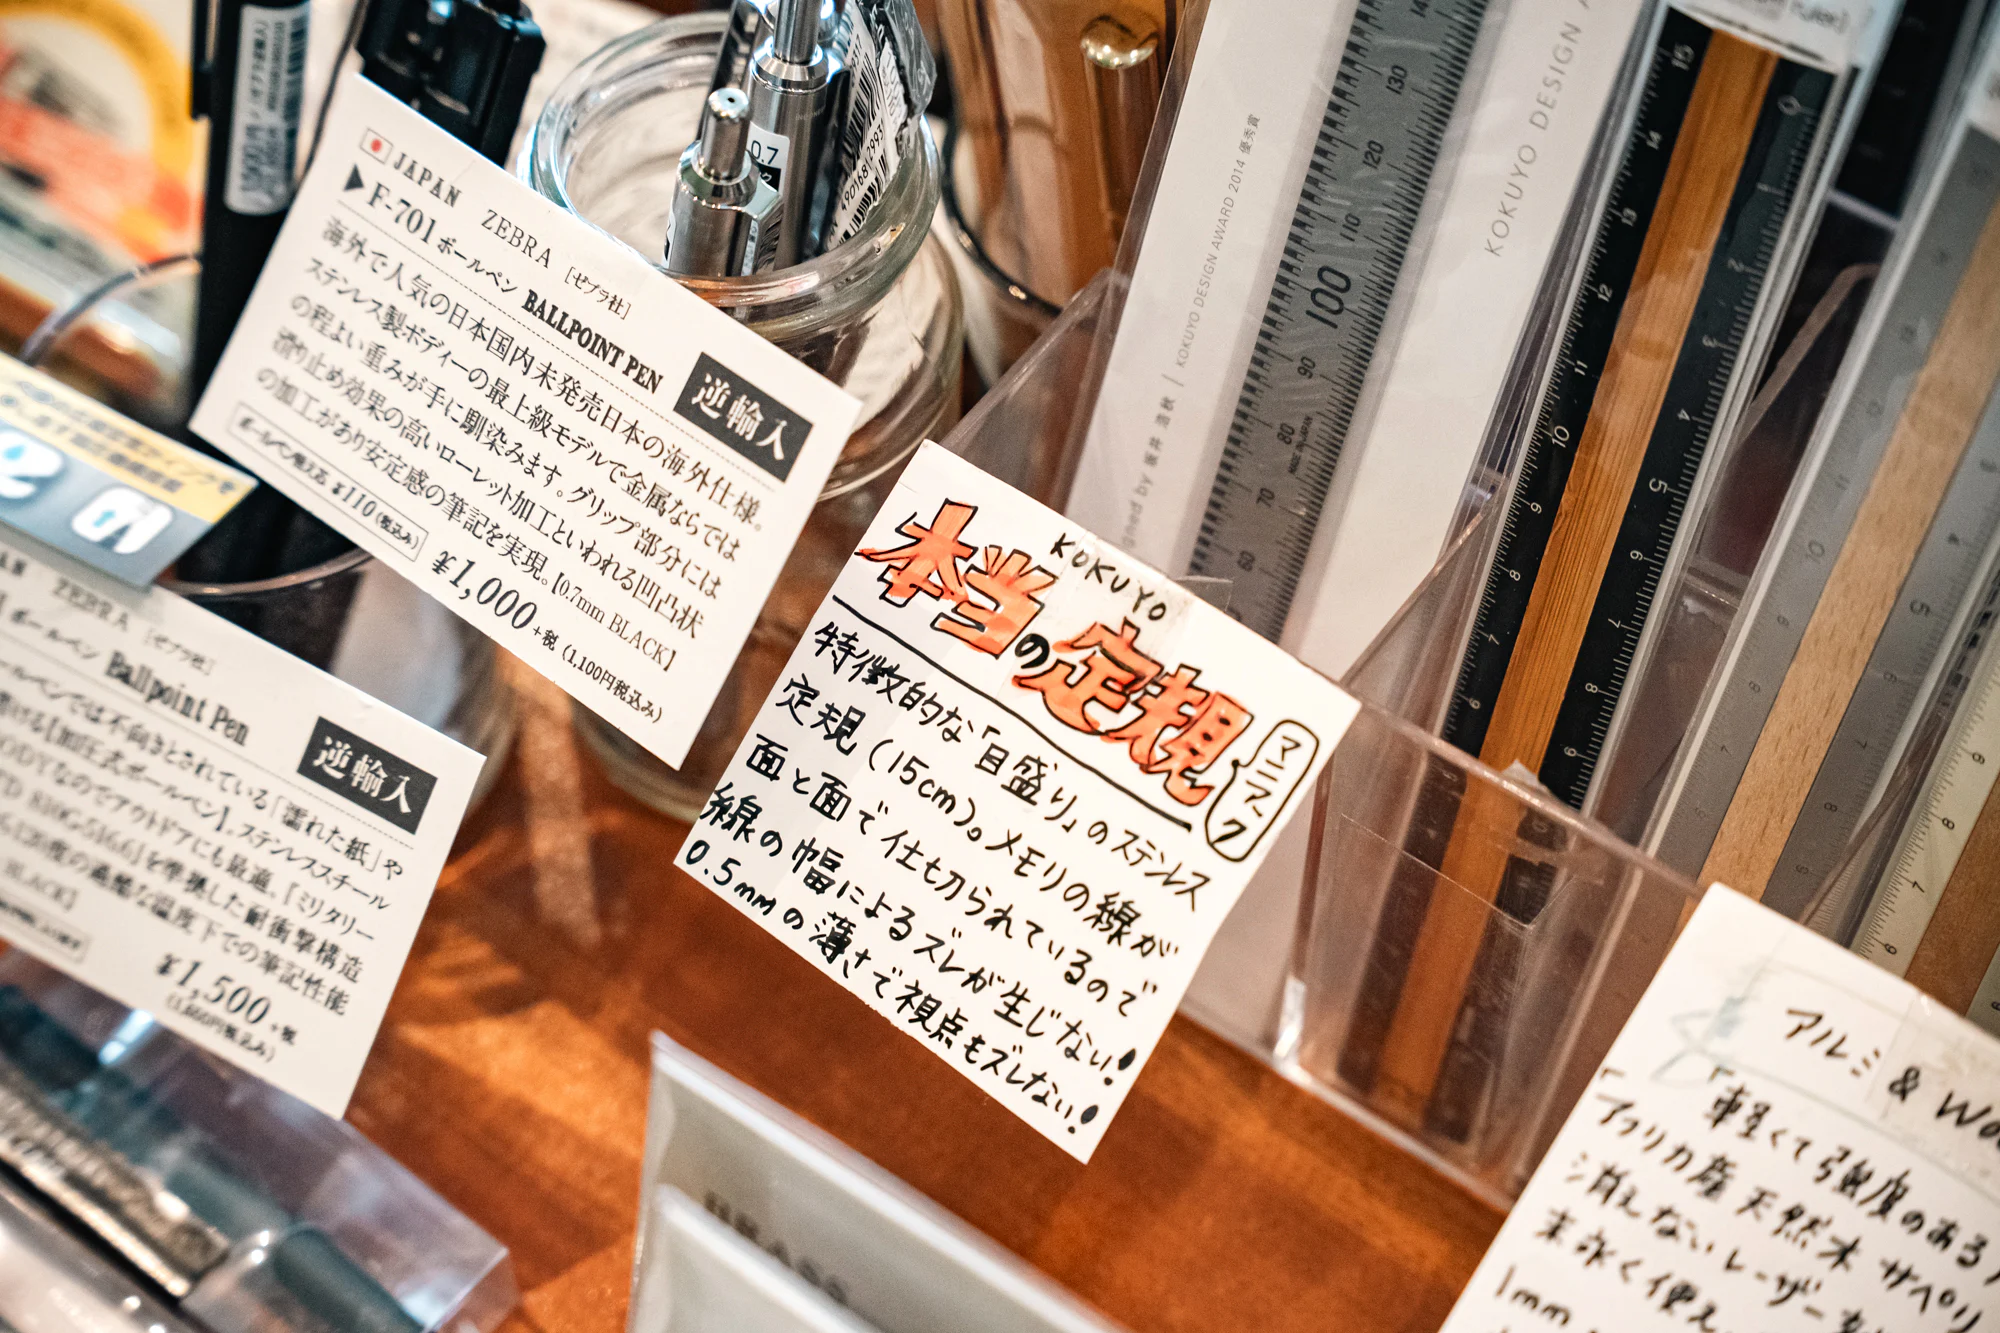 JAPAN ZEBRA [ゼブラ社]
▶F-701 ボールペン BALLPOINT PEN
逆輸入
海外で人気の日本国内未発売日本の海外仕様。
ステンレス製ボディーの最上級モデルで金属ならでは
の程よい重みが手に馴染みます。グリップ部分には
滑り止め効果の高いローレット加工といわれる凹凸状
の加工があり安定感の筆記を実現。[0.7mm BLACK]
ボールペン替え芯 ¥110(税込み)
¥1,000+税 (1,100円税込み)
ZEBRA [ゼブラ社]
ボールペン Ballpoint Pen
逆輸入
ボールペンでは不向きとされている「濡れた紙」や
書ける【加圧式ボールペン】。ステンレススチール
BODYなのでアウトドアにも最適。『ミリタリー
810G-516.6]を準拠した耐衝撃構造
120度の過酷な温度下での筆記性能
BLACK]
¥1,500+税
KOKUYO
本当の定規
マニアック
特徴的な「目盛り」のステンレス
定規(15cm)。メモリの線が
面と面で仕切られているので
線の幅によるズレが生じない!
0.5mmの薄さで視点もズレない!
アルミ & Wo
「軽くて強度のある
「アフリカ産 天然木 サペリ
消えないレーザー
末永く使え
1mm
KOKUYO DESIGN AWARD 2014 優秀賞
KOKUYO DESIGN A
130
120
110
100
90
80
MADE IN JAPAN
70
60
15
14
13
12
11
10
8
7
6
0.7
BRASS